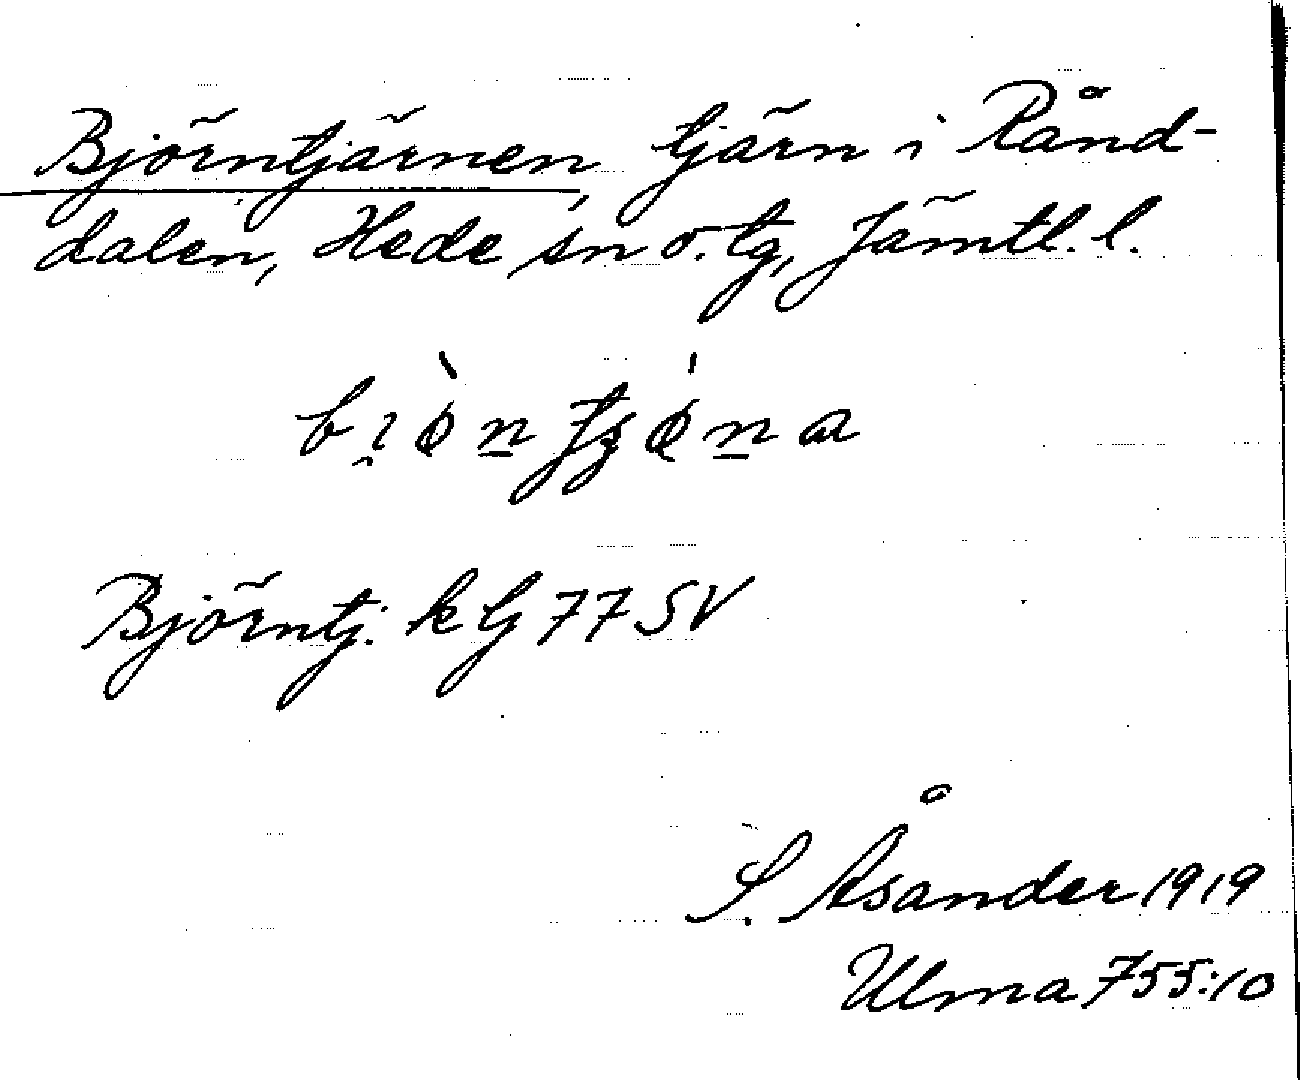 Björntjärnen, tjärn i Rånd-
dalen, Hede sn o. tg, Jämtl. l.
Björntj. k tj 77 SV
S. Åsander 1919
Ulma 755:10